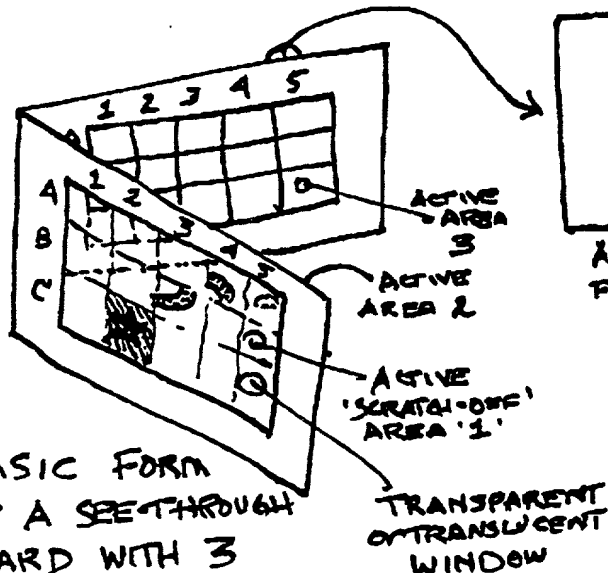 1 2 3 4 5
A
1 2 3 4 5
A
B
C
ACTIVE
AREA
3
ACTIVE
AREA 2
ACTIVE
'SCRATCH-OFF'
AREA '1'
TRANSPARENT
OR TRANSLUCENT
WINDOW
ASIC FORM
A SEE-THROUGH
ARD WITH 3
A
F